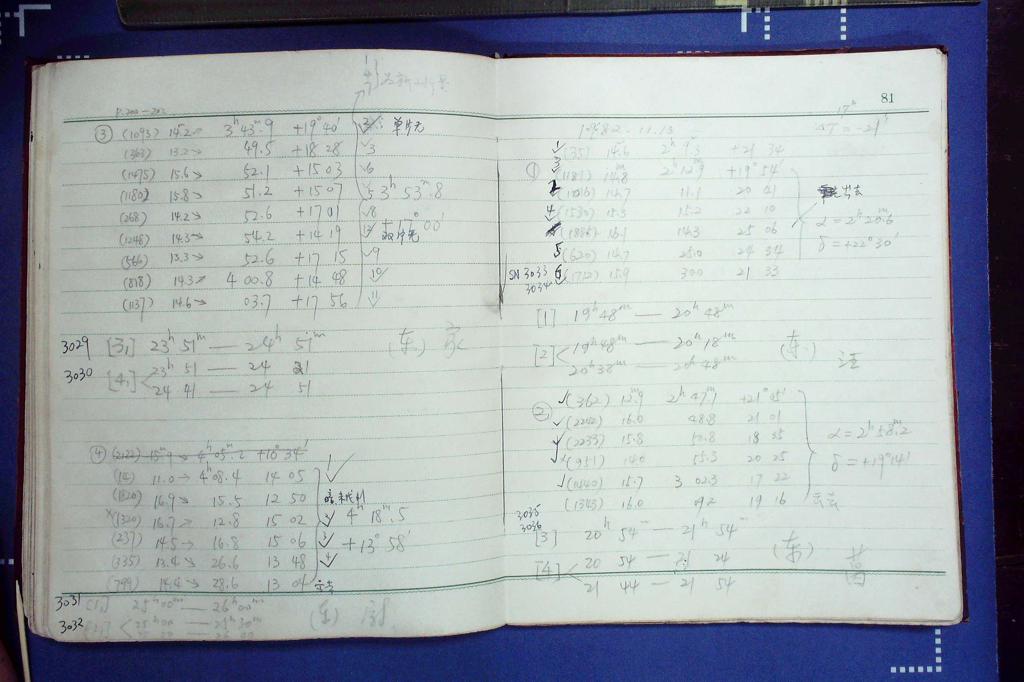 P.200-202
③ (1093) 14.2→ 3ʰ 43ᵐ.9 +19° 40′ 单片无
(363) 13.2→ 49.5 +18 28 3
(1475) 15.6→ 52.1 +15 03 6
(1180) 15.8→ 51.2 +15 07 5 3ʰ 53ᵐ.8
(268) 14.2→ 52.6 +17 01 8
(1248) 14.3→ 54.2 +14 19 +17° 00′
(566) 13.3→ 52.6 +17 15 9
(818) 14.3→ 4 00.8 +14 48 10
(1137) 14.6→ 03.7 +17 56 11
3029 [3,] 23ʰ 51ᵐ — 24ʰ 51ᵐ (东)
3030 [4,] 23ʰ 51 — 24 21
24 41 — 24 51
④ (2122) 15.9→ 4ʰ 05ᵐ.2 +10° 34′ 1
(14) 11.0→ 4ʰ 08.4 14 05
(1820) 16.9→ 15.5 12 50
(1320) 16.7→ 12.8 15 02 4ʰ 18ᵐ.5
(237) 14.5→ 16.8 15 06 3 +13° 58′
(335) 13.4→ 26.6 13 48 4
(799) 14.4→ 28.6 13 04
3031 25ʰ 00ᵐ — 26ʰ 00ᵐ
3032 25ʰ 00 — 25ʰ 30ᵐ (东)
81
17ʰ
ΔT = -21ˢ
1982.11.13
① 1 (35) 14.6 2ʰ 9ᵐ.5 +21 34
3 (1181) 14.8 2ʰ 12ᵐ.9 +19° 54′
2 14.7 11.1 20 01
4 (1530) 15.3 15.2 22 10 α = 2ʰ 20ᵐ.6
(1885) 16.1 14.3 25 06 δ = +22° 30′
5 (620) 14.7 25.0 24 34
SN 3033 6 (1712) 15.9 30.0 21 33
3034
[1] 19ʰ 48ᵐ — 20ʰ 48ᵐ
[2] 19ʰ 48ᵐ — 20ʰ 18ᵐ (东)
20ʰ 38ᵐ — 20ʰ 48ᵐ 汪
② (362) 12.9 2ʰ 47ᵐ.1 +21° 05′
(2242) 16.0 48.8 21 01
(2233) 15.8 50.8 18 35 α = 2ʰ 58ᵐ.2
(951) 14.0 55.3 20 25 δ = +19° 14′
(1140) 15.7 3 02.3 17 22
(1343) 16.0 09.2 19 16
3035
3036
[3] 20ʰ 54ᵐ — 21ʰ 54ᵐ
[4] 20 54 — 21 24 (东)
21 44 — 21 54